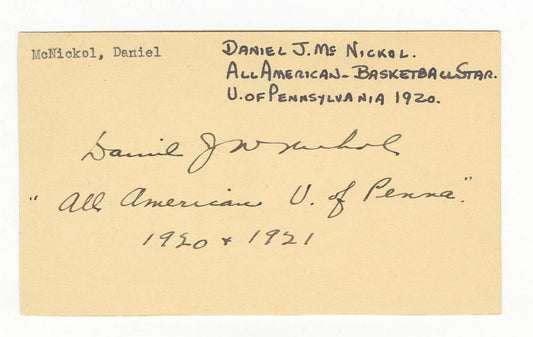 McNickol, Daniel
DANIEL J. Mc NICKOL.
ALL AMERICAN - BASKETBALL STAR.
U. OF PENNSYLVANIA 1920.
Daniel J McNichol
"All American U. of Penna".
1920 + 1921